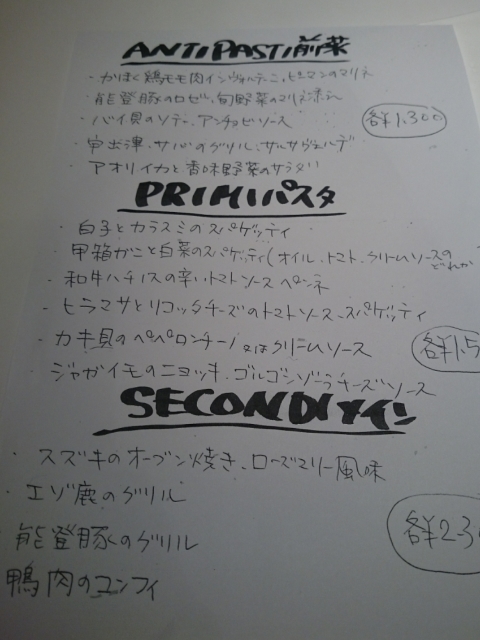 ANTIPASTI 前菜
・かほく鶏モモ肉インヴォルティーニ、ピーマンのマリネ
・能登豚のロゼ、旬野菜のマリネ添え
・バイ貝のソテー、アンチョビソース
各¥1,300
・宇出津、サバのグリル、サルサヴェルデ
・アオリイカと香味野菜のサラダ
PRIMI パスタ
・白子とカラスミのスパゲッティ
・甲箱がにと白菜のスパゲティ(オイル、トマト、クリームソースのどれか
・和牛ハチノスの辛いトマトソース ペンネ
・ヒラマサとリコッタチーズのトマトソース、スパゲッティ
・カキ貝のペペロンチーノ又はクリームソース
各¥1,5
・ジャガイモのニョッキ、ゴルゴンゾーラチーズソース
SECONDI メイン
・スズキのオーブン焼き、ローズマリー風味
・エゾ鹿のグリル
能登豚のグリル
各¥2,30
鴨肉のコンフィ